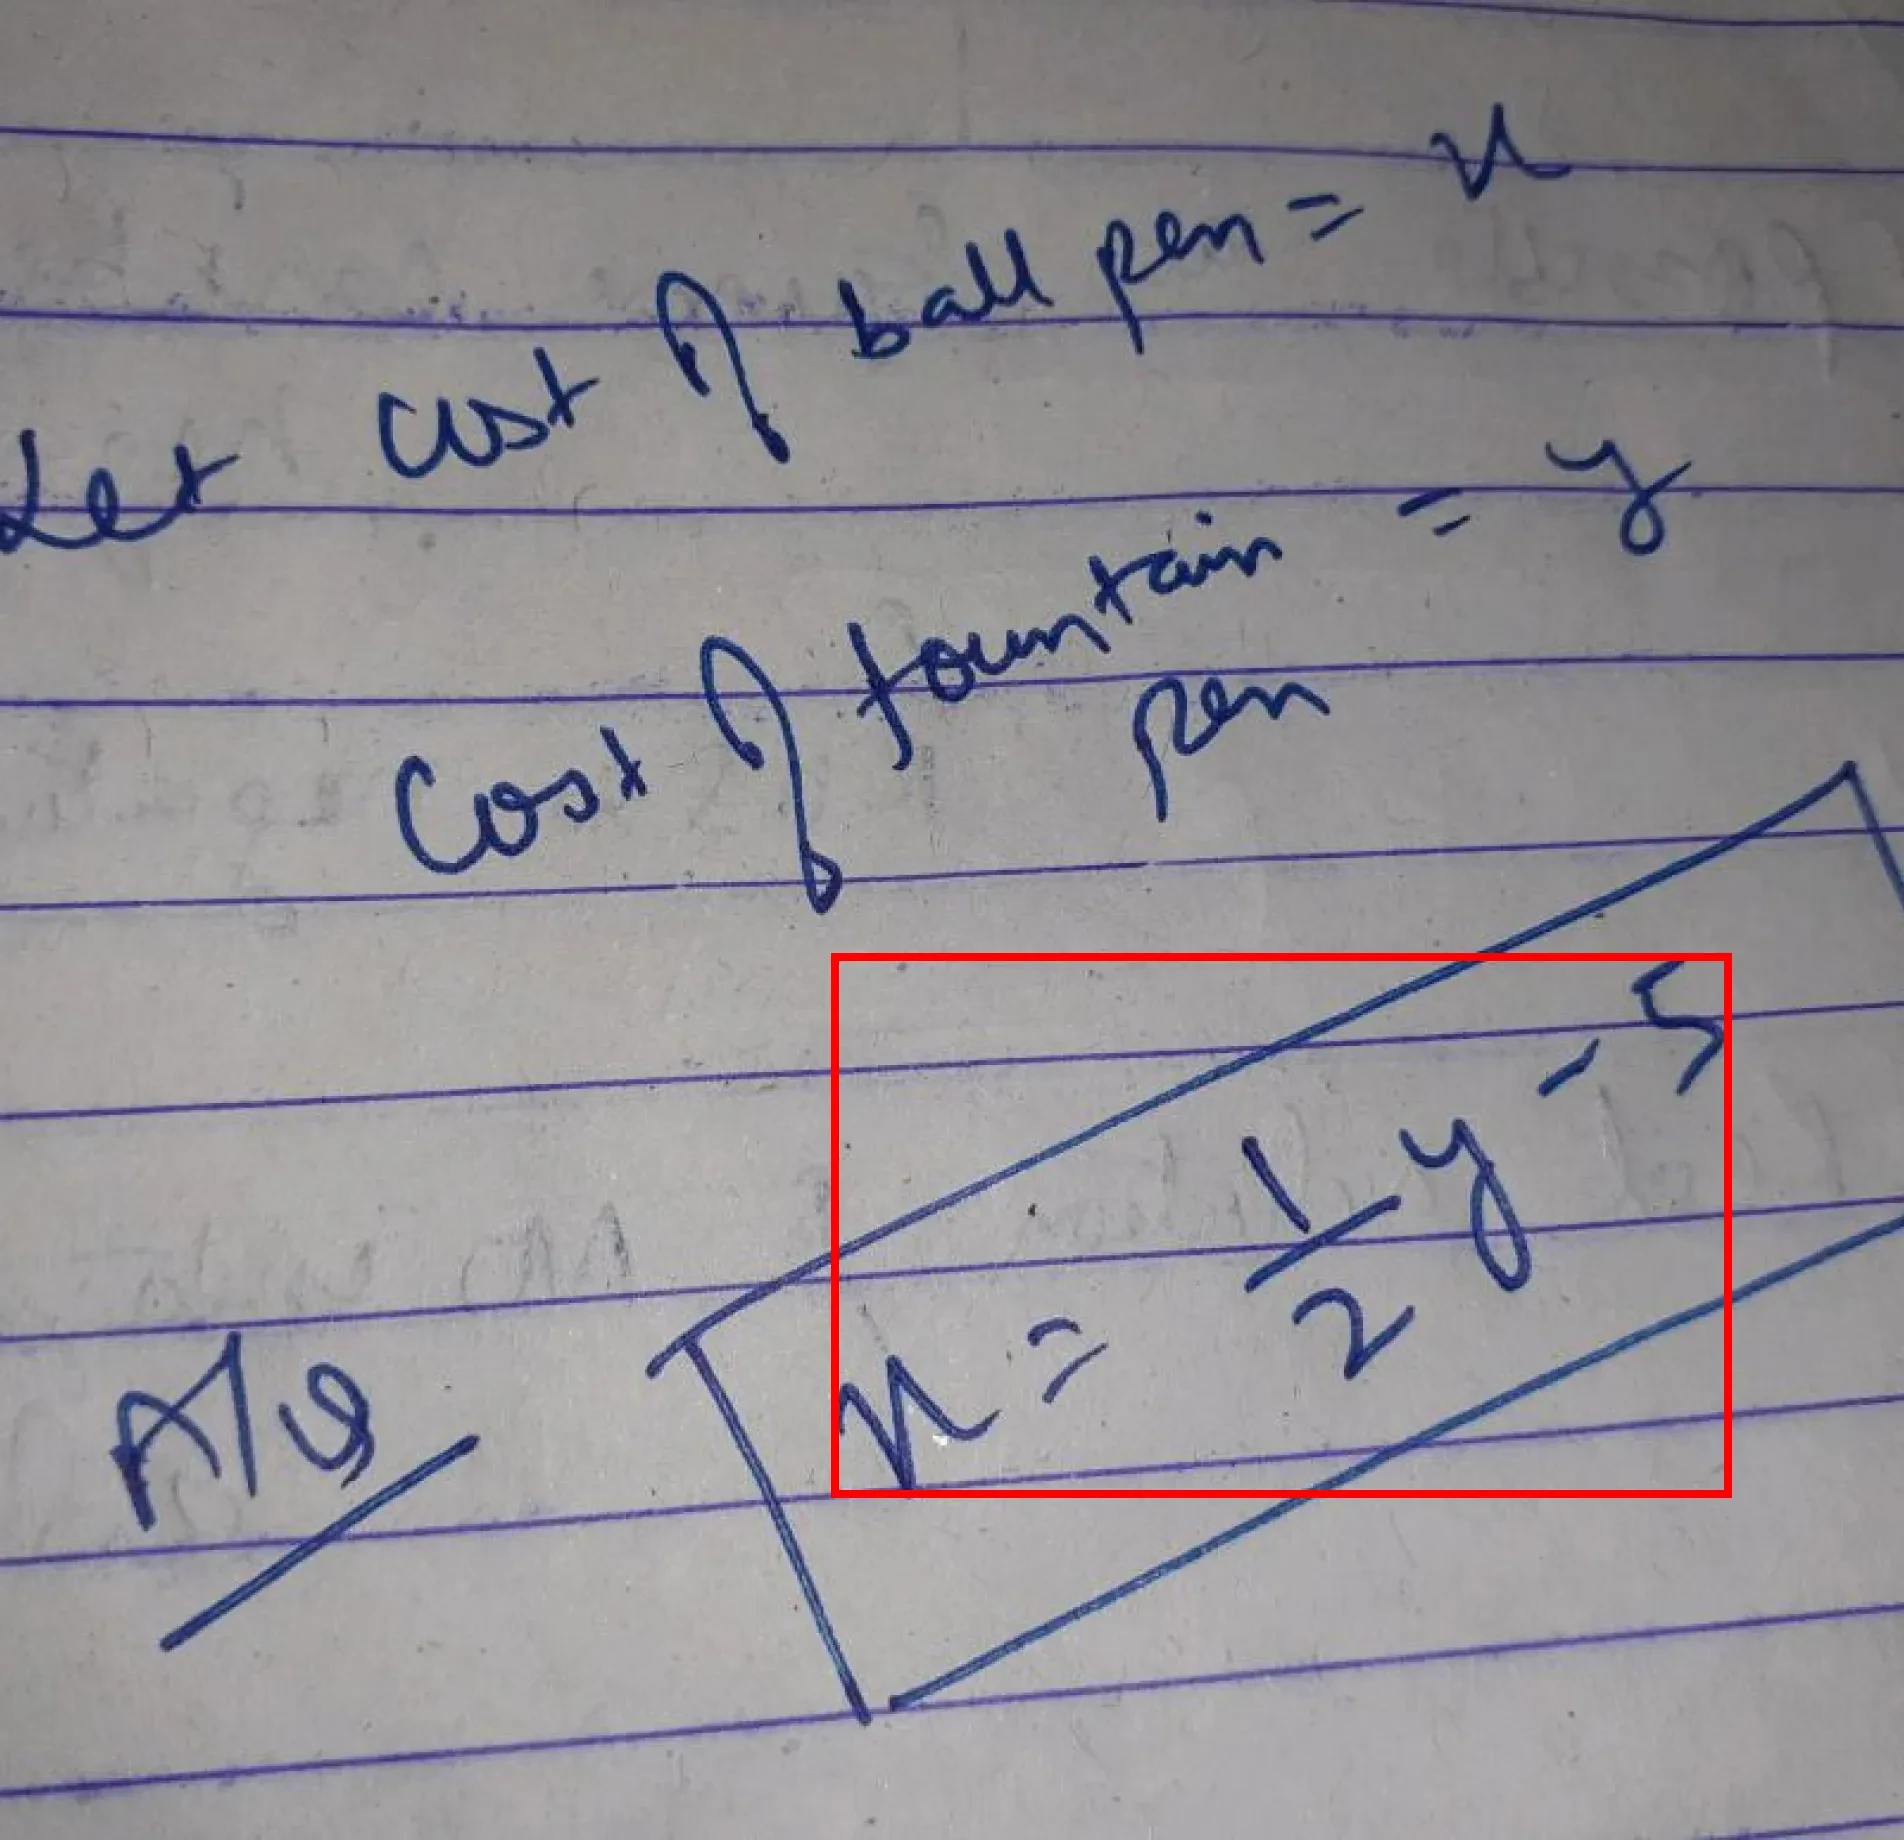 Let cost of ball pen = x
cost of fountain = y
pen
A/Q x = 1/2 y - 5